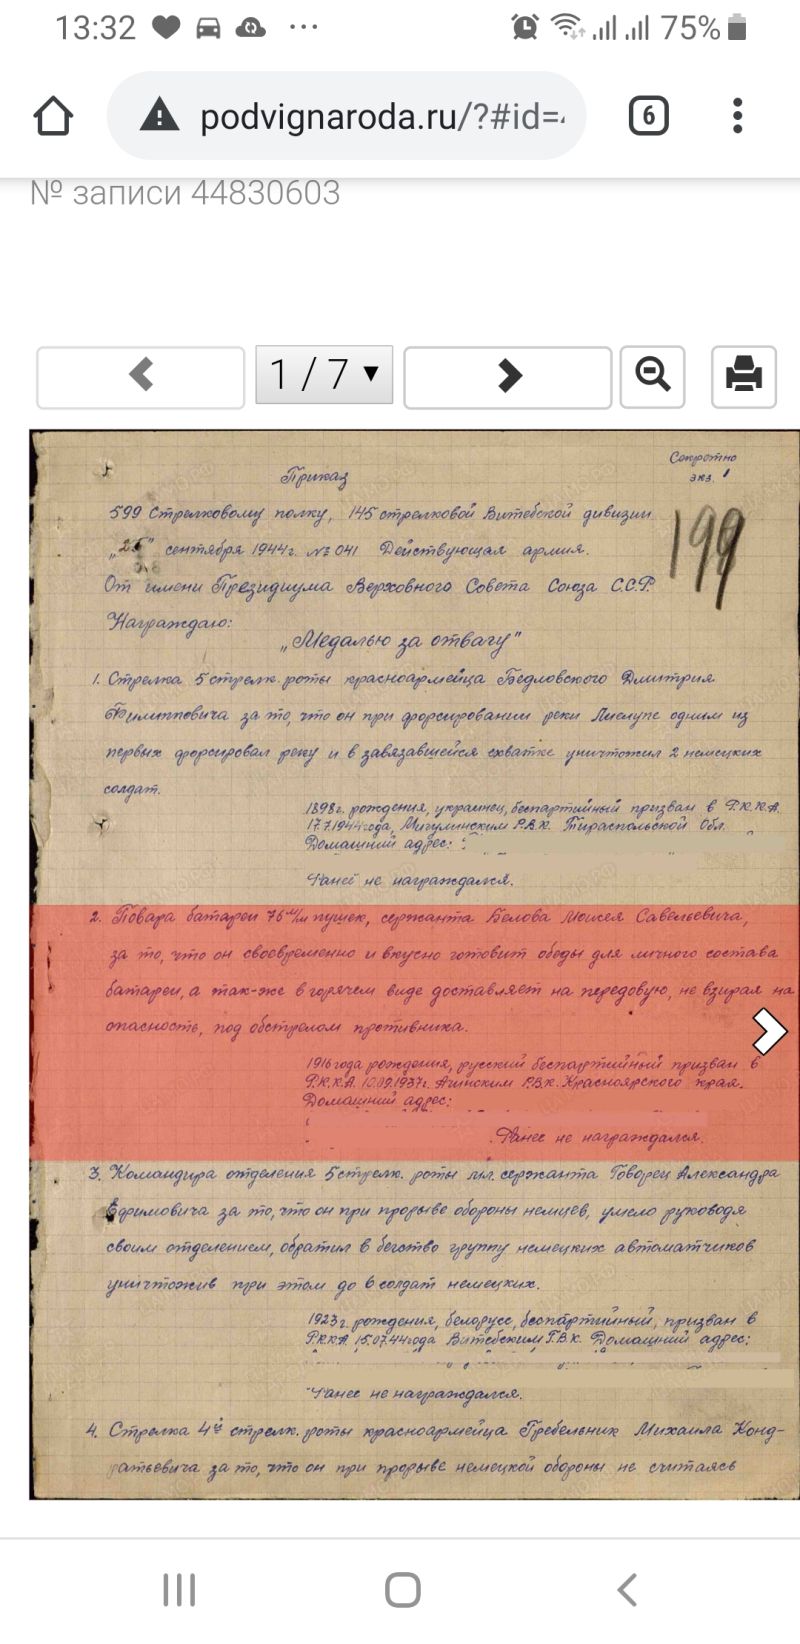 13:32 75%
podvignaroda.ru/?#id=4
6
№ записи 44830603
1 / 7
Секретно
экз. 1
Приказ
599 Стрелковому полку, 145 стрелковой Витебской дивизии
199
"25" сентября 1944г. №041 Действующая армия.
От имени Президиума Верховного Совета Союза С.С.Р.
Награждаю:
„Медалью за отвагу"
1. Стрелка 5 стрелк. роты красноармейца Бедловского Дмитрия
Филипповича за то, что он при форсировании реки Лиелупе одним из
первых форсировал реку и в завязавшейся схватке уничтожил 2 немецких
солдат.
1898г. рождения, украинец, беспартийный призван в Р.К.К.А.
17.7.1944года, Мигулинским Р.В.К. Тираспольской Обл.
Домашний адрес:
Ранее не награждался.
2. Повара батареи 76 м/м пушек, сержанта Белова Моисея Савельевича,
за то, что он своевременно и вкусно готовит обеды для личного состава
батареи, а так-же в горячем виде доставляет на передовую, не взирая на
опасность, под обстрелом противника.
1916 года рождения, русский беспартийный призван в
Р.К.К.А. 10.09.1937г. Ачинским Р.В.К. Красноярского края.
Домашний адрес:
Ранее не награждался.
3. Командира отделения 5 стрелк. роты мл. сержанта Говорец Александра
Ефимовича за то, что он при прорыве обороны немцев, умело руководя
своим отделением, обратил в бегство группу немецких автоматчиков
уничтожив при этом до 6 солдат немецких.
1923г. рождения, белорусс, беспартийный, призван в
Р.К.К.А. 15.07.44года Витебским Г.В.К. Домашний адрес:
Ранее не награждался.
4. Стрелка 4й стрелк. роты красноармейца Гребельник Михаила Конд-
ратьевича за то, что он при прорыве немецкой обороны не считаясь